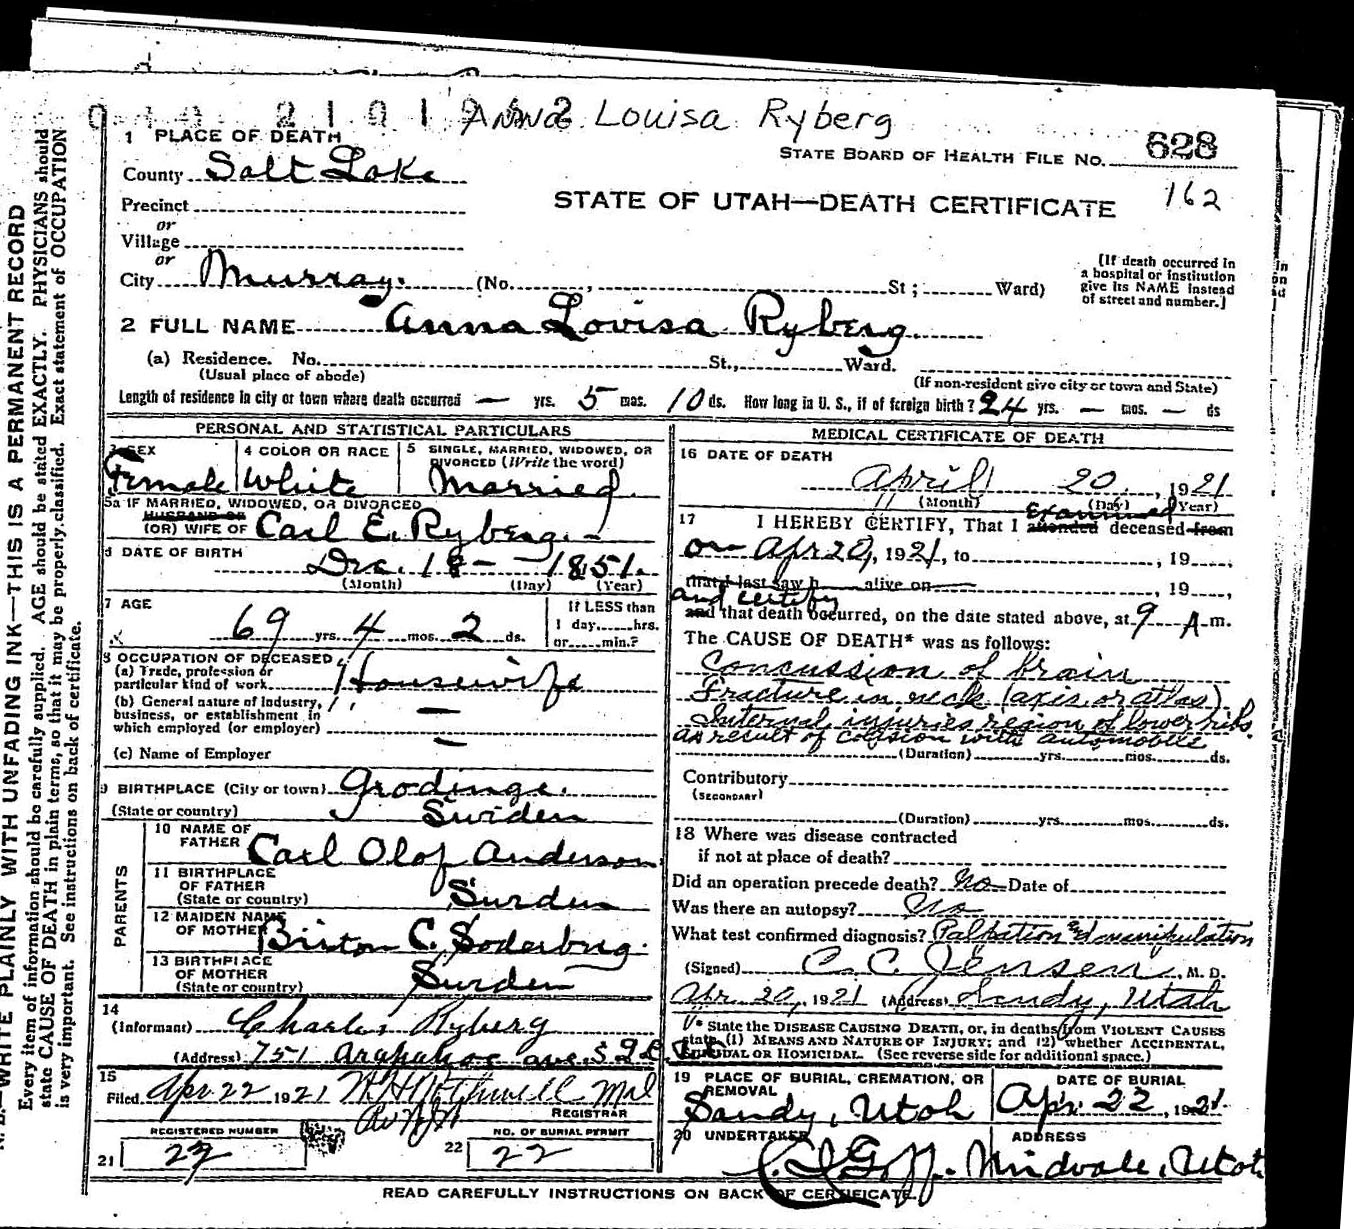 Anna Louisa Ryberg
1 PLACE OF DEATH
STATE BOARD OF HEALTH FILE NO. 628
County Salt Lake
162
STATE OF UTAH—DEATH CERTIFICATE
Precinct
or
Village
or
City Murray. (No. , St ; Ward)
[If death occurred in
a hospital or institution
give its NAME instead
of street and number.]
2 FULL NAME Anna Lovisa Ryberg.
(a) Residence. No. St., Ward.
(Usual place of abode)
(If non-resident give city or town and State)
Length of residence in city or town where death occurred — yrs. 5 mos. 10 ds. How long in U. S., if of foreign birth? 24 yrs. — mos. — ds
PERSONAL AND STATISTICAL PARTICULARS
3 SEX
Female
4 COLOR OR RACE
White
5 SINGLE, MARRIED, WIDOWED, OR
DIVORCED (Write the word)
Married.
5a IF MARRIED, WIDOWED, OR DIVORCED
HUSBAND OF
(OR) WIFE OF Carl E. Ryberg.—
6 DATE OF BIRTH
Dec. 18— 1851.
(Month) (Day) (Year)
7 AGE
69 yrs. 4 mos. 2 ds.
If LESS than
1 day, hrs.
or min.?
8 OCCUPATION OF DECEASED
(a) Trade, profession or
particular kind of work Housewife
(b) General nature of industry,
business, or establishment in
which employed (or employer) —
(c) Name of Employer —
9 BIRTHPLACE (City or town) Grodinge.
(State or country) Swiden
PARENTS
10 NAME OF
FATHER Carl Olof Anderson
11 BIRTHPLACE
OF FATHER
(State or country)
12 MAIDEN NAME
OF MOTHER C. Soderberg.
13 BIRTHPLACE
OF MOTHER
(State or country)
14
(Informant) Charles Ryberg
(Address) 751 Arapahoe ave. S L C
15
Filed Apr 22 1921
REGISTRAR
REGISTERED NUMBER
21 27
NO. OF BURIAL PERMIT
22 22
MEDICAL CERTIFICATE OF DEATH
16 DATE OF DEATH
April 20, 1921
(Month) (Day) (Year)
examined
17 I HEREBY CERTIFY, That I attended deceased from
on Apr 20, 1921, to , 19
that I last saw h alive on , 19
and certify
and that death occurred, on the date stated above, at 9 A m.
The CAUSE OF DEATH* was as follows:
Concussion of brain
Fracture in neck (axis or atlas)
Internal injuries region of lower ribs.
as result of colision with automobile
(Duration) yrs. mos. ds.
Contributory
(SECONDARY)
(Duration) yrs. mos. ds.
18 Where was disease contracted
if not at place of death?
Did an operation precede death? No Date of
Was there an autopsy? No
What test confirmed diagnosis? Palpation and manipulation
(Signed) C. C. Jensen, M. D.
Apr. 20, 1921 (Address) Sandy, Utah
* State the DISEASE CAUSING DEATH, or, in deaths from VIOLENT CAUSES
state (1) MEANS AND NATURE OF INJURY; and (2) whether ACCIDENTAL,
SUICIDAL OR HOMICIDAL. (See reverse side for additional space.)
19 PLACE OF BURIAL, CREMATION, OR
REMOVAL
Sandy, Utah
DATE OF BURIAL
Apr. 22, 1921.
20 UNDERTAKER
Goff.
ADDRESS
Midvale, Utah.
READ CAREFULLY INSTRUCTIONS ON BACK OF CERTIFICATE.
WRITE PLAINLY WITH UNFADING INK—THIS IS A PERMANENT RECORD
Every item of information should be carefully supplied. AGE should be stated EXACTLY. PHYSICIANS should
state CAUSE OF DEATH in plain terms, so that it may be properly classified. Exact statement of OCCUPATION
is very important. See instructions on back of certificate.